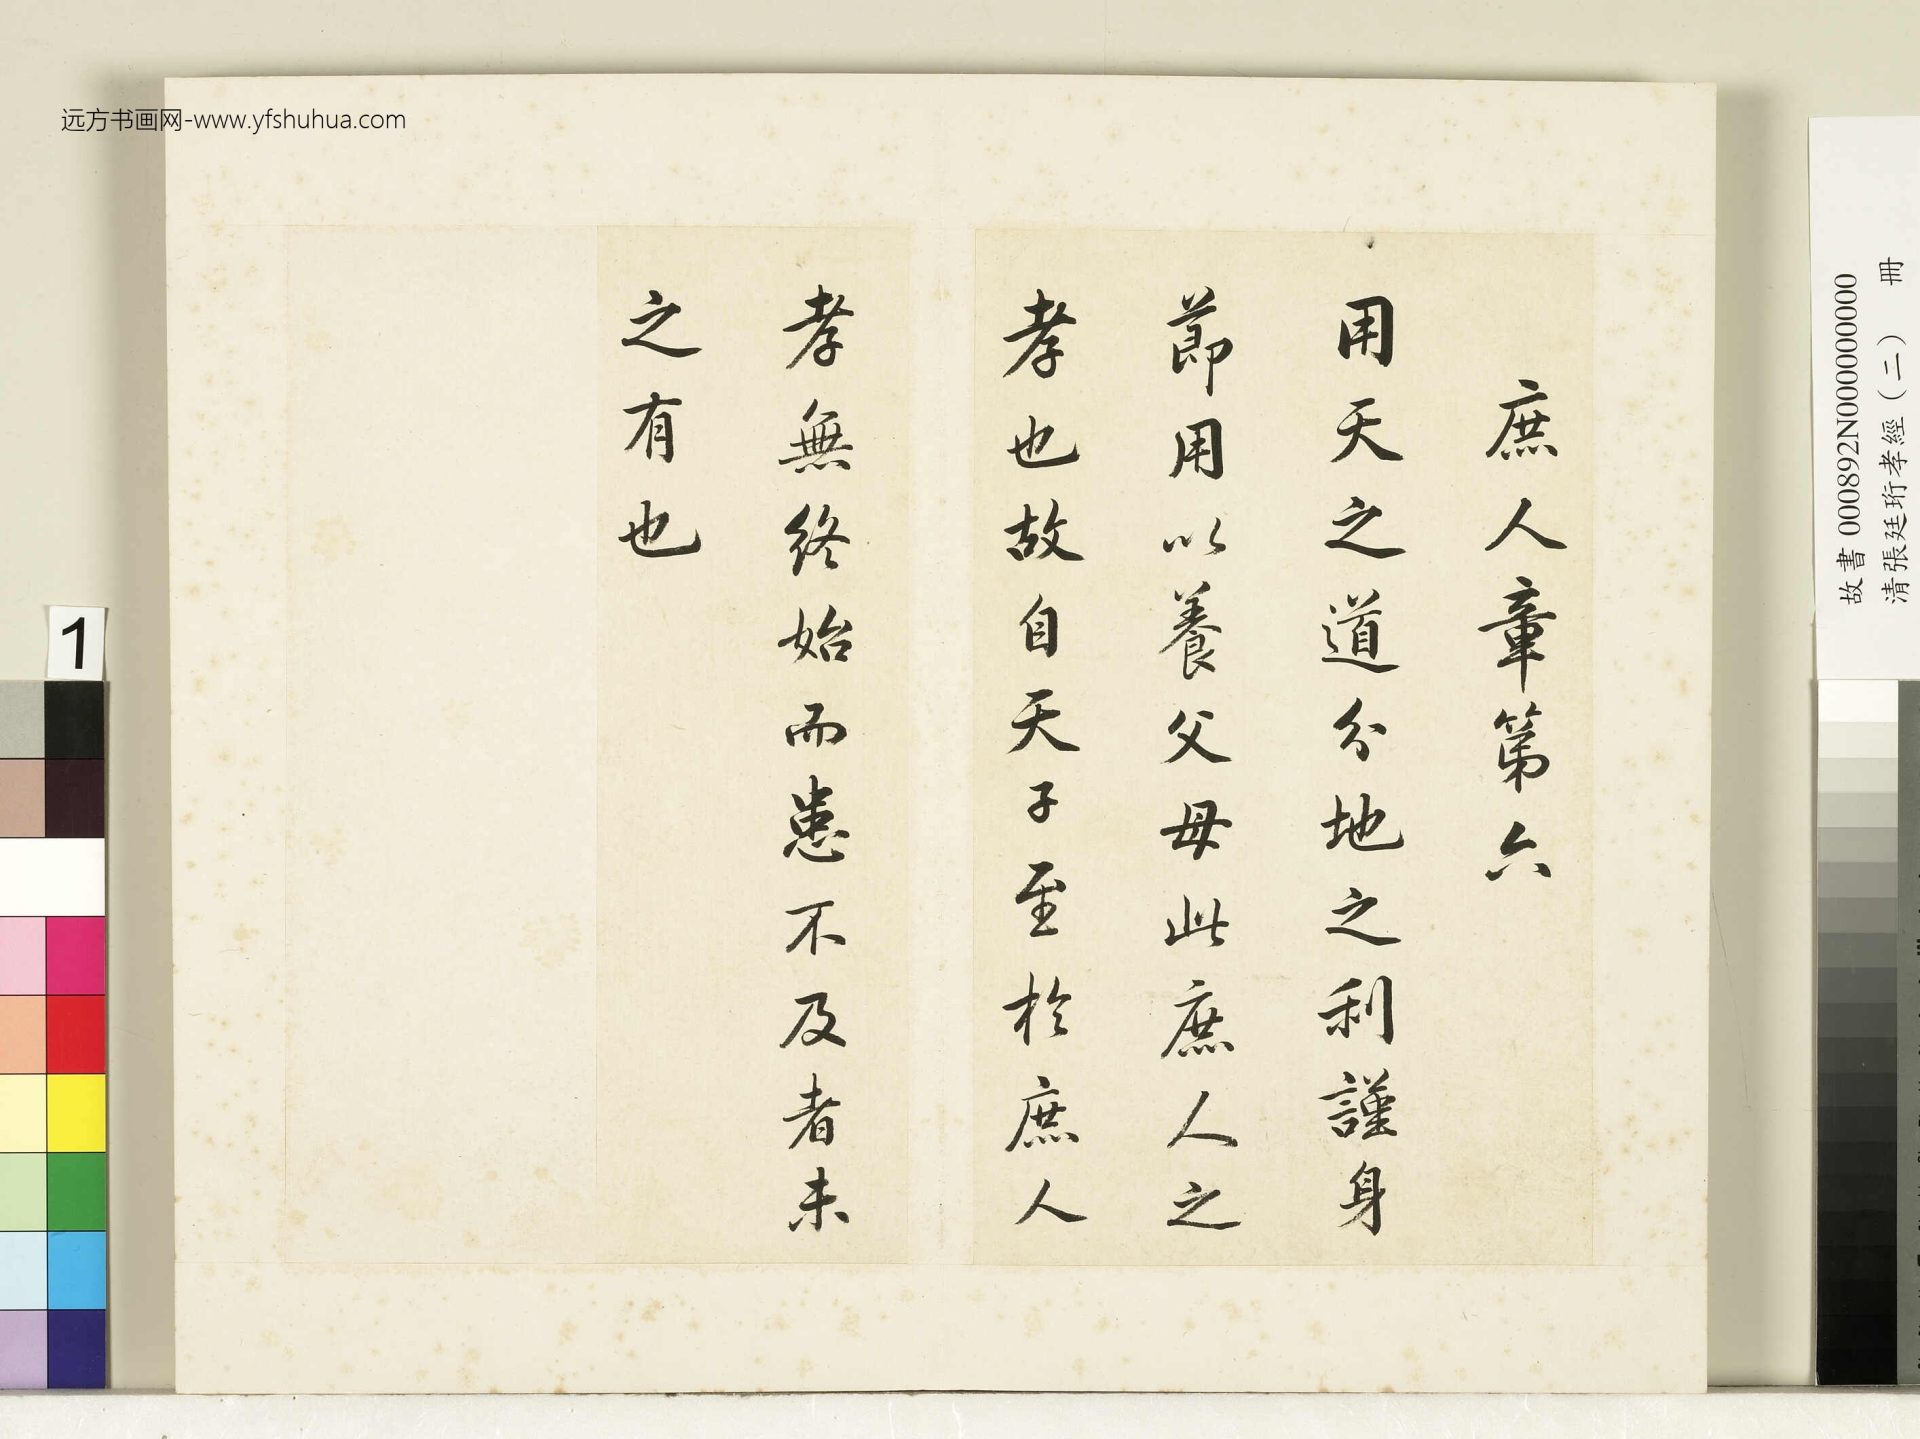 远方书画网-www.yfshuhua.com
庶人章第六
用天之道分地之利謹身
節用以養父母此庶人之
孝也故自天子至於庶人
孝無終始而患不及者未
之有也
故書 000892N000000000
清張廷珩孝經(二) 冊
1